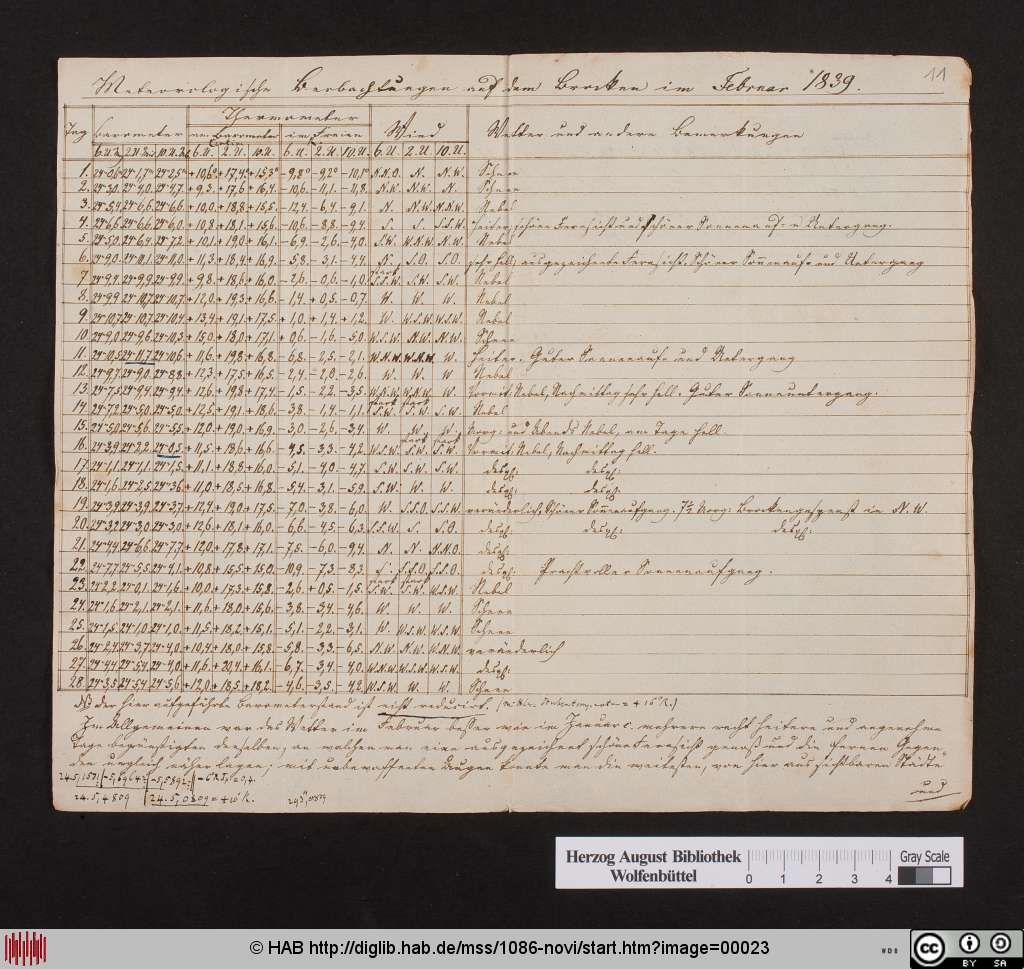 11
Meteorologische Beobachtungen auf dem Brocken im Februar 1839.
Thermometer
Tag Barometer am Barometer im Freien Wind Wetter und andere Bemerkungen
6.U. 2.U. 10.U. 6.U. 2.U. 10.U. 6.U. 2.U. 10.U. 6.U. 2.U. 10.U.
1. 24-0,6 24-1,7 24-2,5 +10,6° +17,4° +15,3° -9,8° -9,2° -10,1° N.N.O. N. N.W. Schnee
2. 24-3,0 24-4,0 24-4,7 +9,3 +17,6 +16,4 -10,6 -11,1 -11,8 N.W. N.W. N. Schnee
3. 24-5,4 24-6,6 24-6,6 +10,0 +18,8 +15,5 -12,4 -6,4 -9,1 N. N.W. N.N.W. Nebel
4. 24-6,6 24-6,6 24-6,0 +10,8 +18,1 +15,6 -10,6 -8,8 -9,4 S. S. S.S.W. heiter, schöne Fernsicht und schöner Sonnenauf- u Untergang.
5. 24-5,0 24-6,4 24-7,2 +10,1 +19,0 +16,1 -6,9 -2,6 -4,0 S.W. W.N.W. N.W. Nebel
6. 24-9,0 24-10,1 24-11,0 +11,3 +18,4 +16,9 -5,8 -3,1 -4,4 N. S.O. S.O. sehr hell, ausgezeichnete Fernsicht. Schöner Sonnenauf- und Untergang
7 24-9,9 24-9,9 24-9,9 +9,8 +18,6 +16,0 -2,6 -0,6 -1,0 stark S.S.W. S.W. S.W. Nebel
8. 24-9,9 24-10,7 24-10,7 +12,0 +19,3 +16,6 -1,4 +0,5 -0,7 W. W. W. Nebel
9. 24-10,7 24-10,7 24-10,4 +13,4 +19,1 +17,5 +1,0 +1,4 +1,2 W. W.S.W. W.S.W. Nebel
10. 24-9,0 24-9,6 24-10,3 +15,0 +18,0 +17,1 +0,6 -1,6 -5,0 W.S.W. N.W. N.W. Schnee
11. 24-10,5 24-11,7 24-10,6 +11,6 +19,8 +16,8 -6,8 -2,5 -2,1 W.N.W. W.N.W. W. heiter. Guter Sonnenauf- und Untergang
12. 24-9,7 24-9,0 24-8,8 +12,3 +17,5 +16,5 -2,4 -2,0 -2,6 W. W. W. Nebel
13. 24-7,5 24-9,4 24-9,4 +12,6 +19,8 +17,4 -1,5 -2,2 -3,5 W.N.W. W.N.W. W. Vormit: Nebel, Nachmittag sehr hell. Guter Sonnenuntergang.
14. 24-7,2 24-5,0 24-5,0 +12,5 +19,1 +18,6 -3,8 -1,4 -1,1 stark S.W. stark S.W. S.W. Nebel
15. 24-5,0 24-8,6 24-5,5 +12,0 +19,0 +16,9 -3,0 -2,6 -3,4 W. W. W. Morg: und Abends Nebel, am Tage hell.
16. 24-3,9 24-2,2 24-0,5 +11,5 +18,6 +16,6 -4,5 -3,3 -4,2 W.S.W. stark S.W. stark S.W. Vormit: Nebel, Nachmittag hell.
17. 24-1,1 24-1,1 24-1,5 +11,1 +18,8 +16,0 -5,1 -4,0 -4,7 S.W. S.W. S.W. desgl: desgl:
18. 24-1,6 24-2,5 24-3,6 +11,0 +18,5 +16,8 -5,4 -3,1 -5,9 S.W. W. W. desgl: desgl:
19. 24-3,9 24-3,9 24-3,7 +12,4 +19,0 +17,5 -7,0 -3,8 -6,0 W. S.S.O. S.S.W. veränderlich, Schöner Sonnenaufgang. 7½ Morg: Brockengespenst in N.W.
20. 24-3,2 24-3,0 24-3,0 +12,6 +18,1 +16,0 -6,6 -4,5 -6,3 S.S.W. S. S.O. desgl: desgl: desgl:
21. 24-4,4 24-6,6 24-7,7 +12,0 +17,8 +17,1 -7,5 -6,0 -9,4 N. N. N.N.O. desgl:
22. 24-7,7 24-5,5 24-4,1 +10,8 +15,5 +15,0 -10,9 -7,3 -8,3 S. S.S.O. S.S.O. desgl: Prachtvoller Sonnenaufgang.
23. 24-2,2 24-0,1 24-1,6 +10,0 +17,3 +15,8 -2,6 -0,5 -1,5 stark S.W. stark S.W. W.S.W. Nebel
24. 24-1,6 24-2,1 24-2,1 +11,6 +18,0 +15,6 -3,8 -3,4 -4,6 W. W. W. Schnee
25. 24-1,5 24-1,0 24-1,0 +11,5 +18,2 +15,1 -5,1 -2,2 -3,1 W. W.S.W. W.S.W. Schnee
26. 24-2,4 24-3,7 24-4,0 +10,4 +18,0 +15,8 -5,8 -3,3 -6,5 N.W. N.W. W.N.W. veränderlich
27. 24-4,4 24-5,4 24-4,0 +11,6 +20,4 +16,1 -6,7 -3,4 -4,0 W.N.W. W.S.W. W.S.W. desgl:
28. 24-3,5 24-5,4 24-5,6 +12,0 +18,5 +18,2 -4,6 -3,5 -4,2 W.S.W. W. W. Schnee
NB der hier aufgeführte Barometerstand ist nicht reducirt.
Im Allgemeinen war das Wetter im Februar besser wie im Januar c. mehrere recht heitere und angenehme
Tage begünstigten denselben, an welchen man eine ausgezeichnet schöne Fernsicht genoß und die fernen Gegen-
den ungleich näher lagen; mit unbewaffneten Augen konnte man die weitesten, von hier aus sichtbaren Städte
und
24.5,4809 24.5,0809 = +10°R.
Herzog August Bibliothek
Wolfenbüttel
0 1 2 3 4
Gray Scale
© HAB http://diglib.hab.de/mss/1086-novi/start.htm?image=00023
WDB
cc BY SA